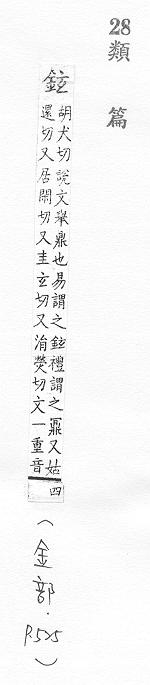 28
類篇
鉉
胡犬切說文舉鼎也易謂之鉉禮謂之鼏又姑
還切又居閑切又圭玄切又消熒切文一重音四
（金部．P.525）